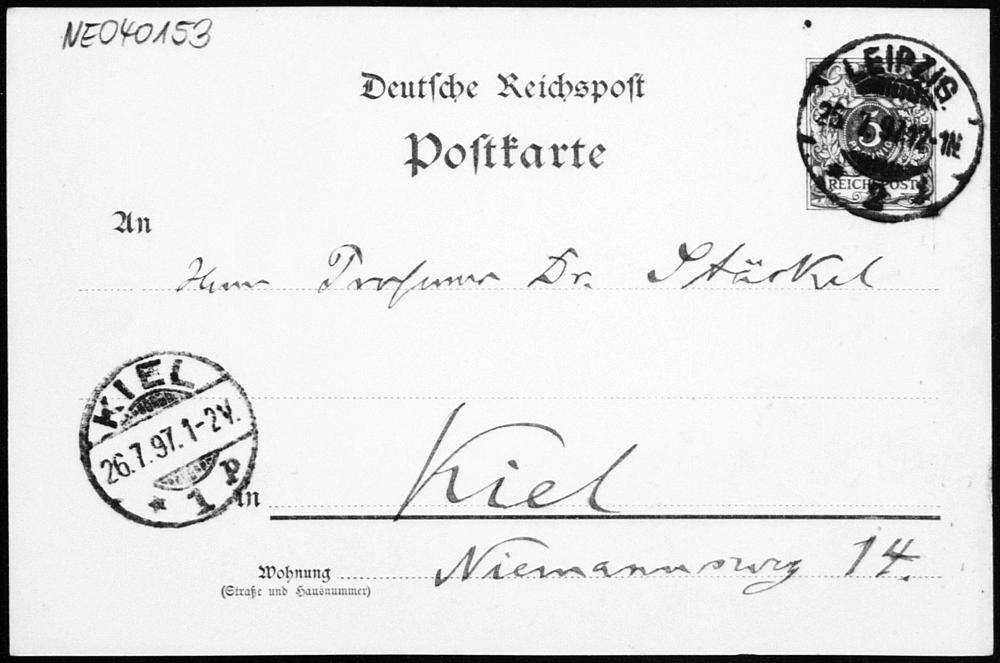 NE040153
Deutsche Reichspost
Postkarte
LEIPZIG.
25.7.97.12-1N
* 2 t
5
REICHSPOST
An
Herrn Professor Dr. Stäckel
KIEL
26.7.97.1-2V.
* 1 p
In
Kiel
Wohnung
(Straße und Hausnummer)
Niemannsweg 14.